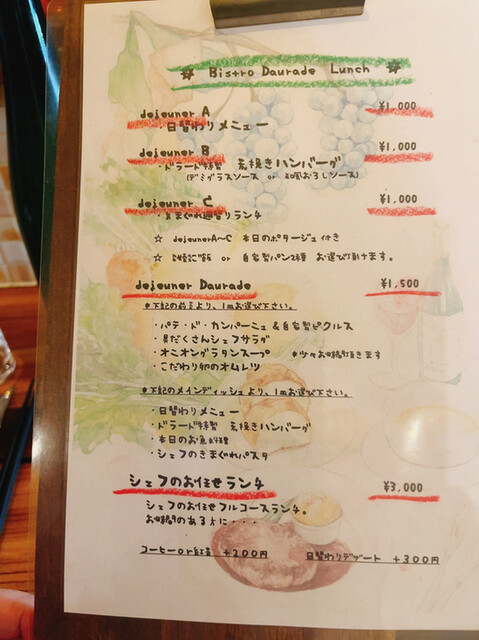 Bistro Daurade Lunch
dejeuner A ¥1,000
・日替わりメニュー
dejeuner B ¥1,000
・ドラード特製 荒挽きハンバーグ
(デミグラスソース or 和風おろしソース)
dejeuner C ¥1,000
・気まぐれ週替りランチ
☆ dejeunerA〜C 本日のポタージュ付き
☆ 雑穀ご飯 or 自家製パン2種 お選び頂けます。
dejeuner Daurade ¥1,500
*下記の前菜より、1品お選び下さい。
・パテ・ド・カンパーニュ&自家製ピクルス
・具だくさんシェフサラダ
・オニオングラタンスープ *少々お時間頂きます
・こだわり卵のオムレツ
*下記のメインディッシュより、1品お選び下さい。
・日替わりメニュー
・ドラード特製 荒挽きハンバーグ
・本日のお魚料理
・シェフのきまぐれパスタ
シェフのお任せランチ ¥3,000
シェフのお任せフルコースランチ。
お時間のある方に・・・
コーヒーor紅茶 +200円 日替わりデザート +300円